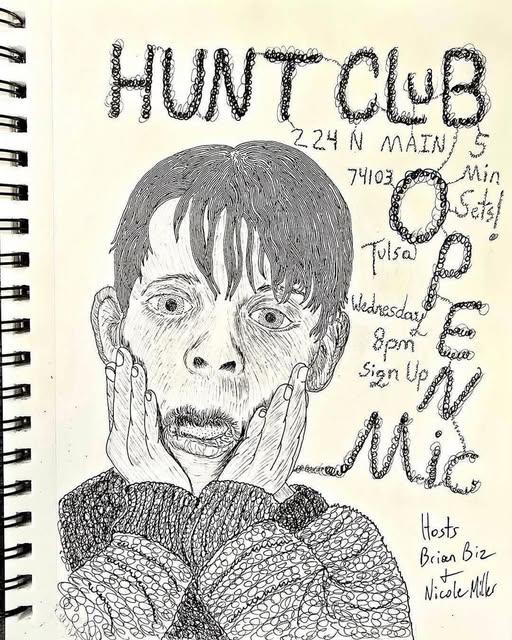 HUNT CLUB
224 N MAIN
74103
5
Min
Sets!
OPEN
Tulsa
Wednesday
8pm
Sign Up
Mic
Hosts
Brian Biz
+
Nicole Miller